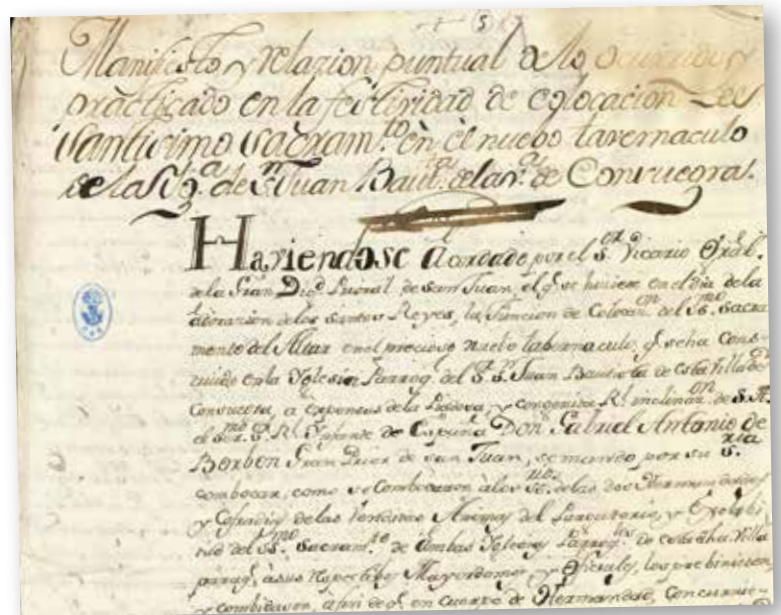 5
Manifiesto y relazion puntual de lo ocurrido y
practicado en la festividad de colocacion del
santisimo sacram.to en el nuebo tavernaculo
de la Yg.a de Sn Juan Baut.a de la v.a de Consuegra.
Haviendose acordado por el S.or Vicario Gral.
de la Gran Dig.d Prioral de san Juan, el q.e se hiciese en el dia de la
adorazion de los santos Reyes, la funcion de Colocaz.on del SS.mo Sacra
mento del Altar en el precioso nuebo tabernaculo, q.e se ha Cons-
truido en la Yglesia Parroq.l del S.r Sn Juan Bautista de esta Villa de
Consuegra, a expensas de la Piadosa, y congenida R.l inclinaz.on de S.A.
el Ser.mo S.r Ynfante de España Don Gabriel Antonio de
Borbon Gran Prior de san Juan, se mando por su S.ria
combocar, como se Combocaron a los SS.nos de las dos Hermandades
y Cofradias de las Venditas Animas del Purgatorio, y
del SS.mo Sacram.to de ambas Yglesias Parroq.les de esta dha. Villa
para q.e a sus respectibos Mayordomos y Oficiales, los prebiniesen
y combidasen, a fin de q.e en cuerpo de Hermandad, Concurrie-